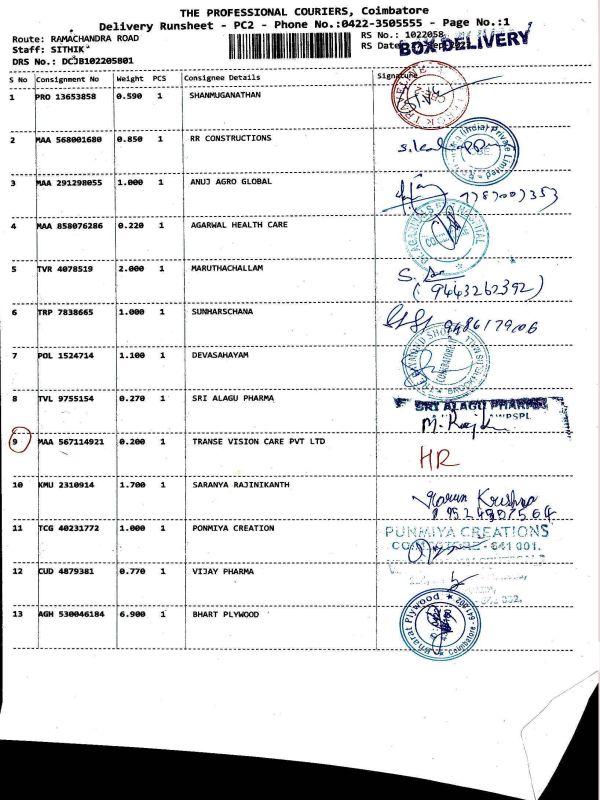 THE PROFESSIONAL COURIERS, Coimbatore
Delivery Runsheet - PC2 - Phone No.:0422-3505555 - Page No.:1
Route: RAMACHANDRA ROAD
Staff: SITHIK
DRS No.: DCJB102205801
RS No.: 1022058
RS Date:
BOX DELIVERY
S No Consignment No Weight PCS Consignee Details Signature
1 PRO 13653858 0.590 1 SHANMUGANATHAN
2 MAA 568001680 0.850 1 RR CONSTRUCTIONS
(India) Private Limited
3 MAA 291298055 1.000 1 ANUJ AGRO GLOBAL
7787007353
4 MAA 858076286 0.220 1 AGARWAL HEALTH CARE
5 TVR 4078519 2.000 1 MARUTHACHALLAM
(9443262392)
6 TRP 7838665 1.000 1 SUNHARSCHANA
9486179006
7 POL 1524714 1.100 1 DEVASAHAYAM
8 TVL 9755154 0.270 1 SRI ALAGU PHARMA
SRI ALAGU PHARMA
9 MAA 567114921 0.200 1 TRANSE VISION CARE PVT LTD
HR
10 KMU 2310914 1.700 1 SARANYA RAJINIKANTH
Harun Krishna
11 TCG 40231772 1.000 1 PONMIYA CREATION
PUNMIYA CREATIONS
COIMBATORE - 641 001.
12 CUD 4879381 0.770 1 VIJAY PHARMA
13 AGH 530046184 6.900 1 BHART PLYWOOD
Bharat Plywood
Coimbatore - 641 002